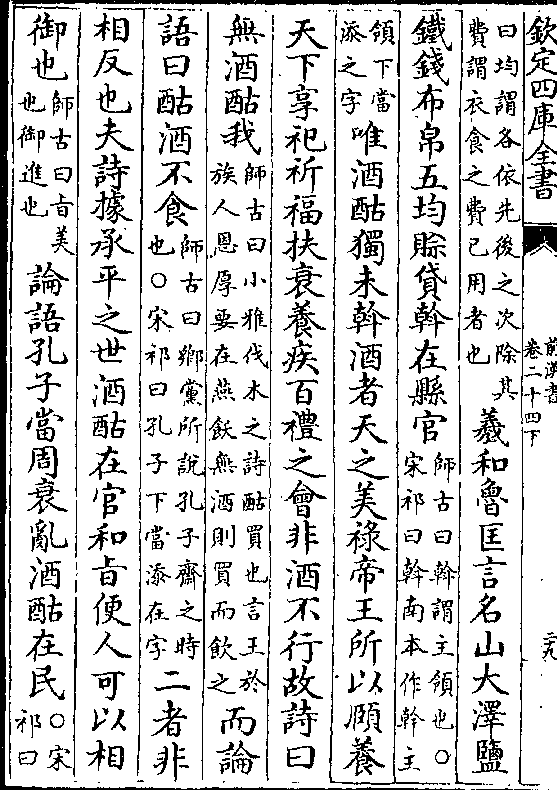 欽定四庫全書
前漢書
卷二十四下
二九
曰均謂各依先後之次除其
費謂衣食之費已用者也
羲和魯匡言名山大澤鹽
鐵錢布帛五均賒貸斡在縣官
師古曰斡謂主領也○
宋祁曰斡南本作幹主
領下當
添之字
唯酒酤獨未斡酒者天之美祿帝王所以頤養
天下享祀祈福扶衰養疾百禮之會非酒不行故詩曰
無酒酤我
師古曰小雅伐木之詩酤買也言王於
族人恩厚要在燕飫無酒則買而飲之
而論
語曰酤酒不食
師古曰鄉黨所說孔子齋之時
也○宋祁曰孔子下當添在字
二者非
相反也夫詩據承平之世酒酤在官和旨便人可以相
御也
師古曰旨美
也御進也
論語孔子當周衰亂酒酤在民
○宋
祁曰